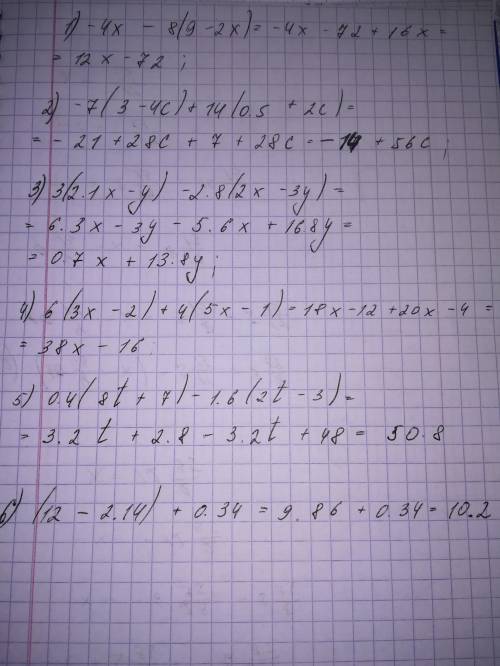 1) -4x - 8(9 - 2x) = -4x - 72 + 16x =
= 12x - 72 ;
2) -7(3 - 4c) + 14(0.5 + 2c) =
= - 21 + 28c + 7 + 28c = -14 + 56c ;
3) 3(2.1x - y) - 2.8(2x - 3y) =
= 6.3x - 3y - 5.6x + 16.8y =
= 0.7x + 13.8y ;
4) 6(3x - 2) + 4(5x - 1) = 18x - 12 + 20x - 4 =
= 38x - 16
5) 0.4(8t + 7) - 1.6(2t - 3) =
= 3.2t + 2.8 - 3.2t + 48 = 50.8
6) (12 - 2.14) + 0.34 = 9.86 + 0.34 = 10.2